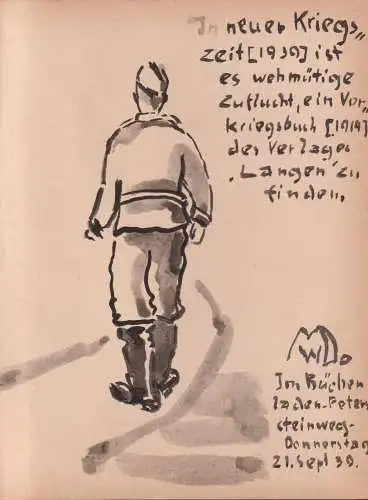 In neuer Kriegs„
zeit [1939] ist
es wehmütige
Zuflucht, ein Vor„
kriegsbuch [1914]
des Verlages
„Langen" zu
finden.
MWD
Im Bücher
laden-Peters
steinweg-
Donnerstag
21. Sept 39.